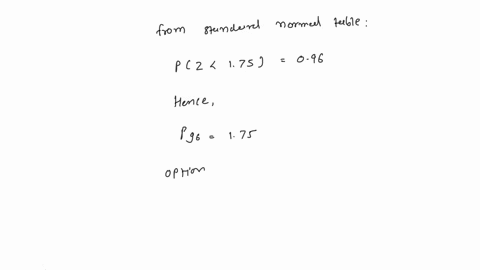 from standered normal table:
P(Z < 1.75) = 0.96
Hence,
P96 = 1.75
option